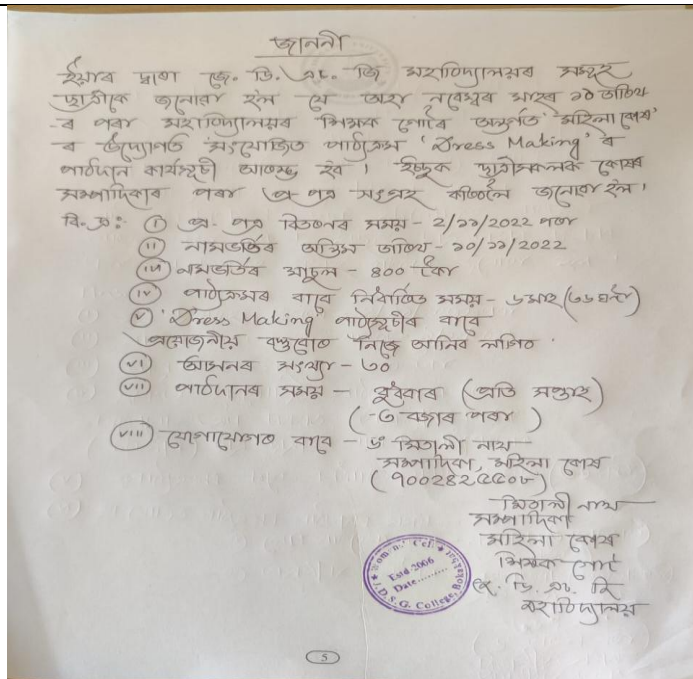 জাননী
ইয়াৰ দ্বাৰা জে. ডি. এচ. জি মহাবিদ্যালয়ৰ সমূহ
ছাত্ৰীকে জনোৱা হ'ল যে অহা নৱেম্বৰ মাহৰ ১০ তাৰিখ
-ৰ পৰা মহাবিদ্যালয়ৰ শিক্ষক গোটৰ অন্তৰ্গত 'মহিলা কোষ'
-ৰ উদ্যোগত সংযোজিত পাঠ্যক্ৰম 'Dress Making' ৰ
পাঠদান কাৰ্যসূচী আৰম্ভ হ'ব। ইচ্ছুক ছাত্ৰীসকলক কোষৰ
সম্পাদিকাৰ পৰা প্ৰ-পত্ৰ সংগ্ৰহ কৰিবলৈ জনোৱা হ'ল।
বি.দ্ৰ: (i) প্ৰ-পত্ৰ বিতৰণৰ সময় - 2/১১/2022 পৰা
(ii) নামভৰ্তিৰ অন্তিম তাৰিখ - ১০/১১/2022
(iii) নামভৰ্তিৰ মাচুল - ৪০০ টকা
(iv) পাঠ্যক্ৰমৰ বাবে নিৰ্ধাৰিত সময় - ৬ মাহ (৩৬ ঘণ্টা)
(v) 'Dress Making' পাঠ্যসূচীৰ বাবে
প্ৰয়োজনীয় বস্তুবোৰ নিজে আনিব লাগিব.
(vi) আসনৰ সংখ্যা - ৩০
(vii) পাঠদানৰ সময় - বুধবাৰ (প্ৰতি সপ্তাহ)
(-৩ বজাৰ পৰা)
(viii) যোগাযোগৰ বাবে - ড° মিতালী নাথ
সম্পাদিকা, মহিলা কোষ
মিতালী নাথ
সম্পাদিকা
মহিলা কোষ
শিক্ষক গোট
জে. ডি. এচ. জি
মহাবিদ্যালয়
Women's Cell
Estd 2006
Date.........
J.D.S.G. College, Bokakhat
5